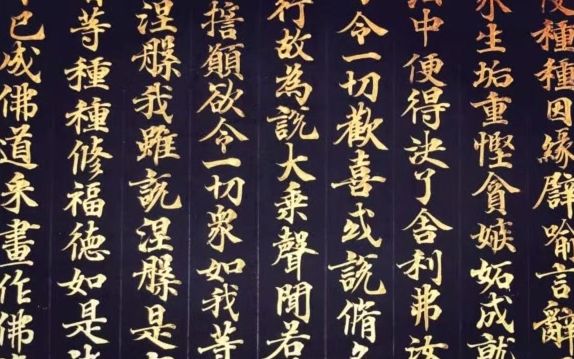 種種因緣譬喻言辭
衆生垢重慳貪嫉妬成就
中便得決了舍利弗
令一切歡喜或說脩
行故為說大乘聲聞若
誓願欲令一切衆如我等
涅槃我雖說涅槃是
等種種修福德如是
已成佛道采畫作佛